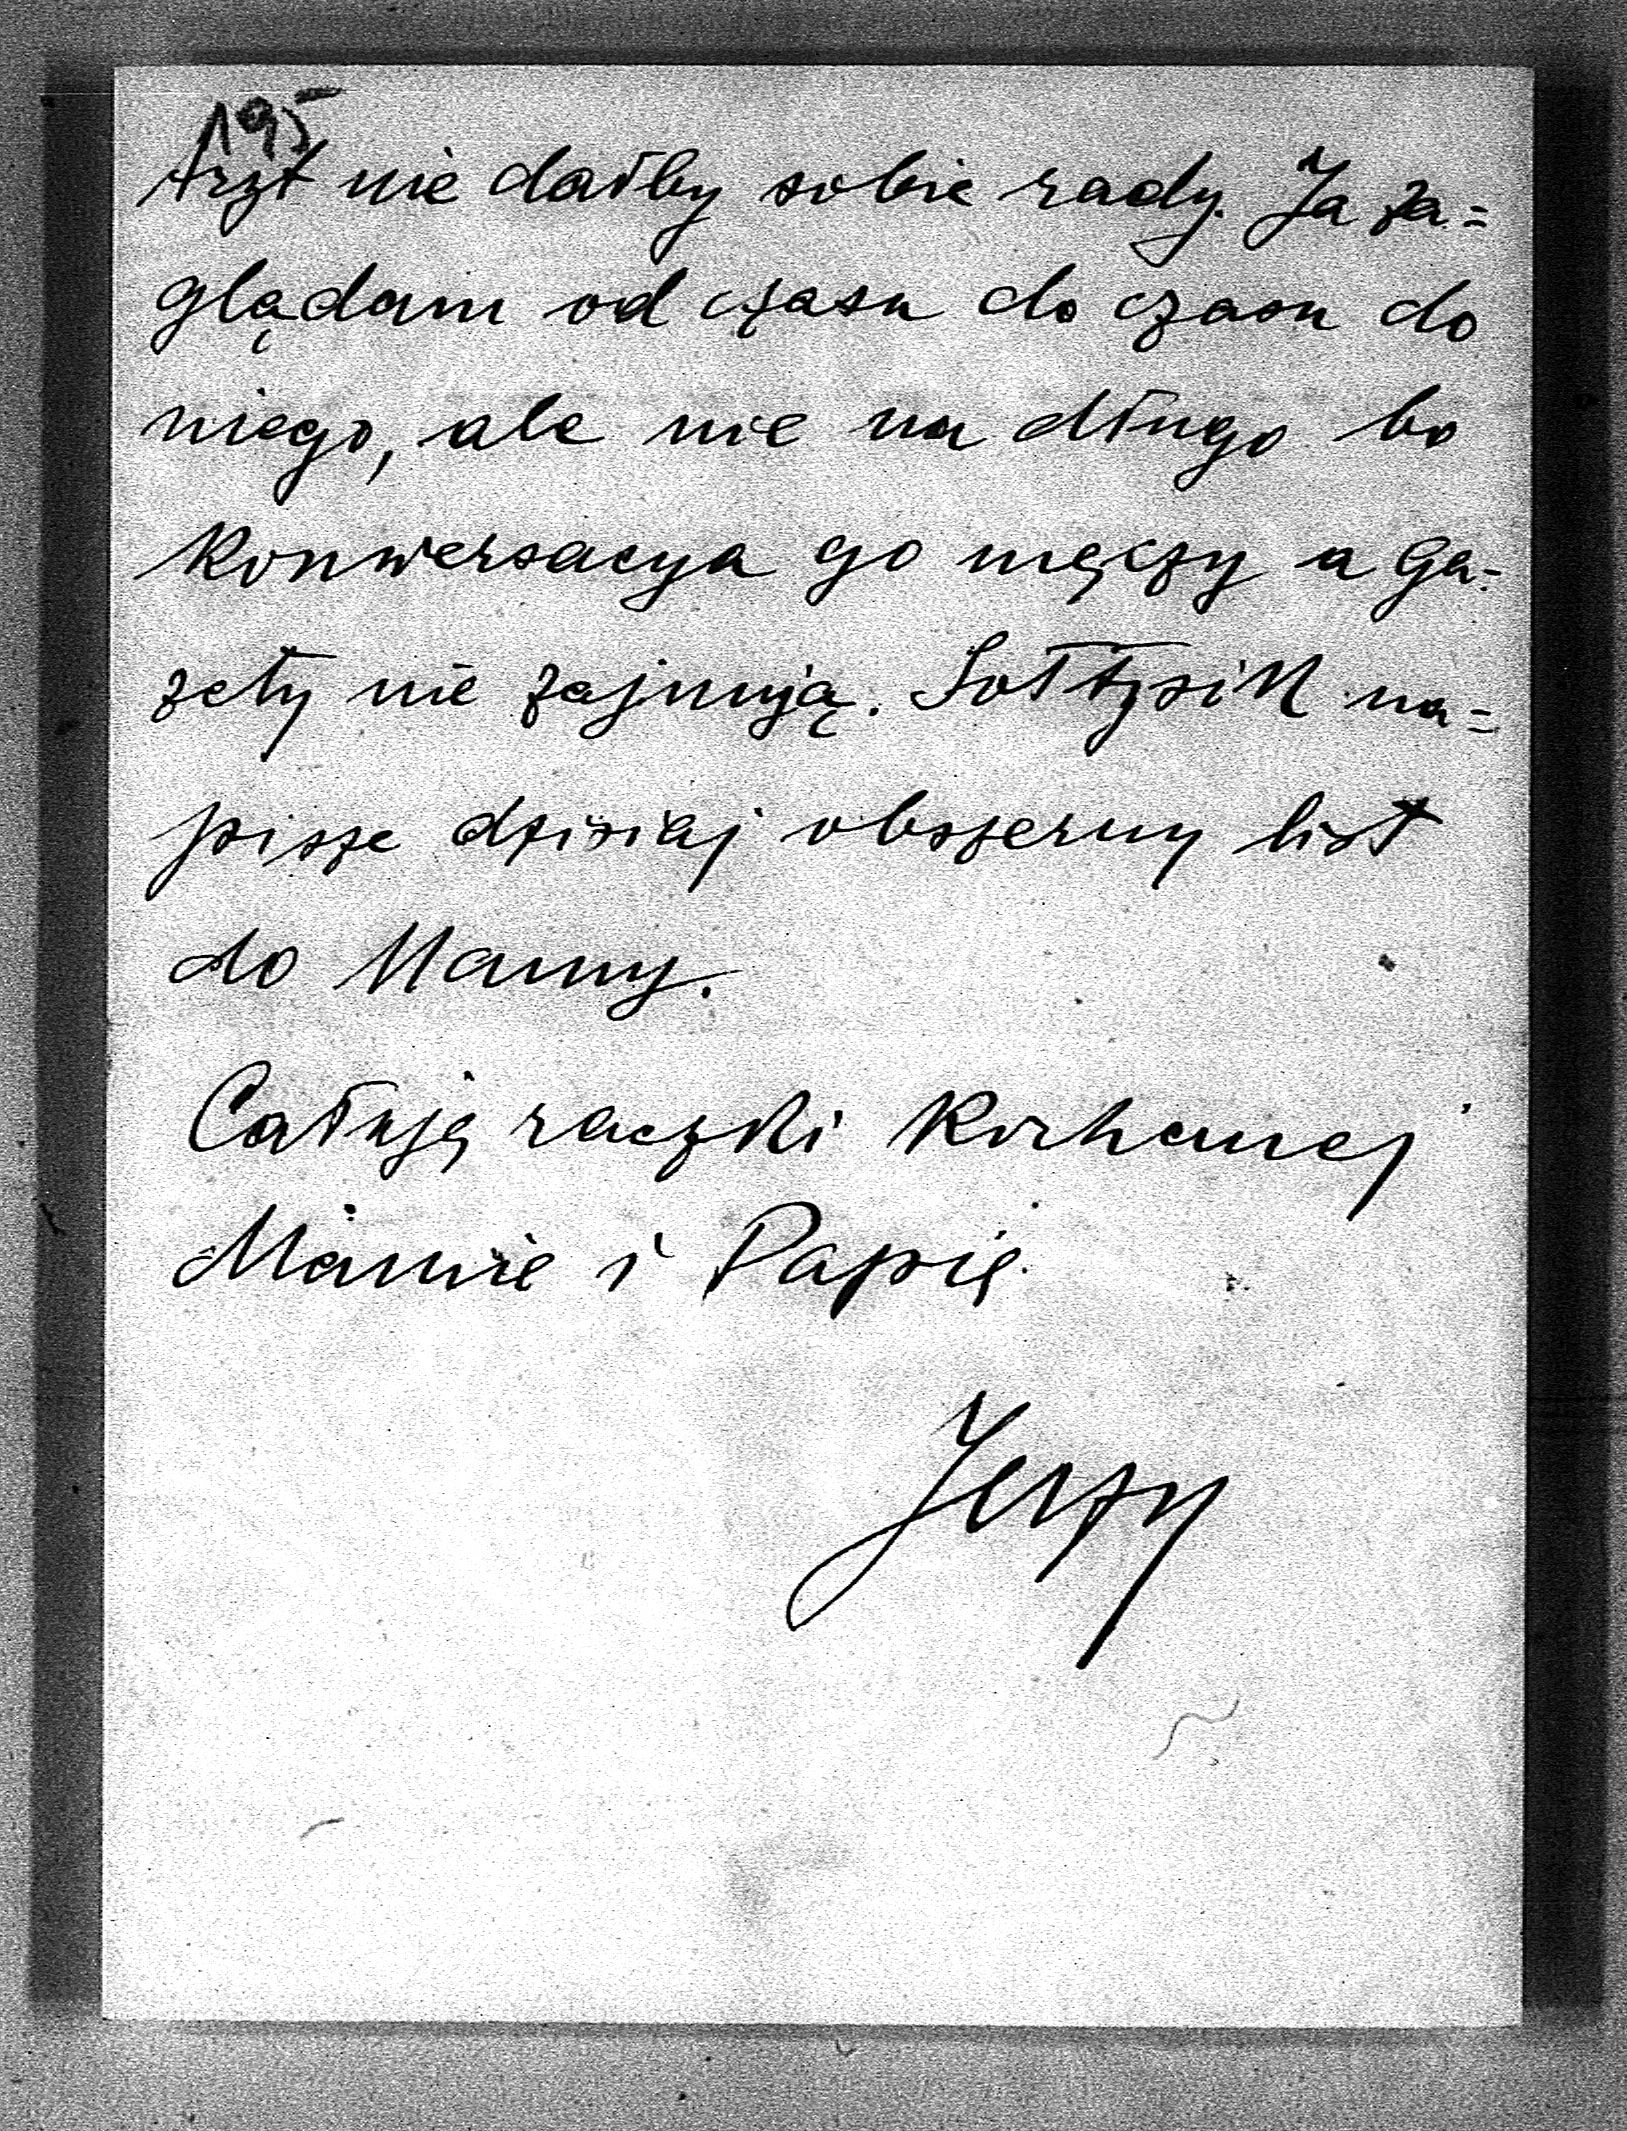 195
Arzt nie dałby sobie rady. Ja za=
glądam od czasu do czasu do
niego, ale nie na długo bo
Konwersacya go męczy a ga-
zety nie zajmują. Sołtysik na=
pisze dzisiaj obszerny list
do Mamy.
Całuję raczki Kochanej
Mamie i Papie.
Jerzy